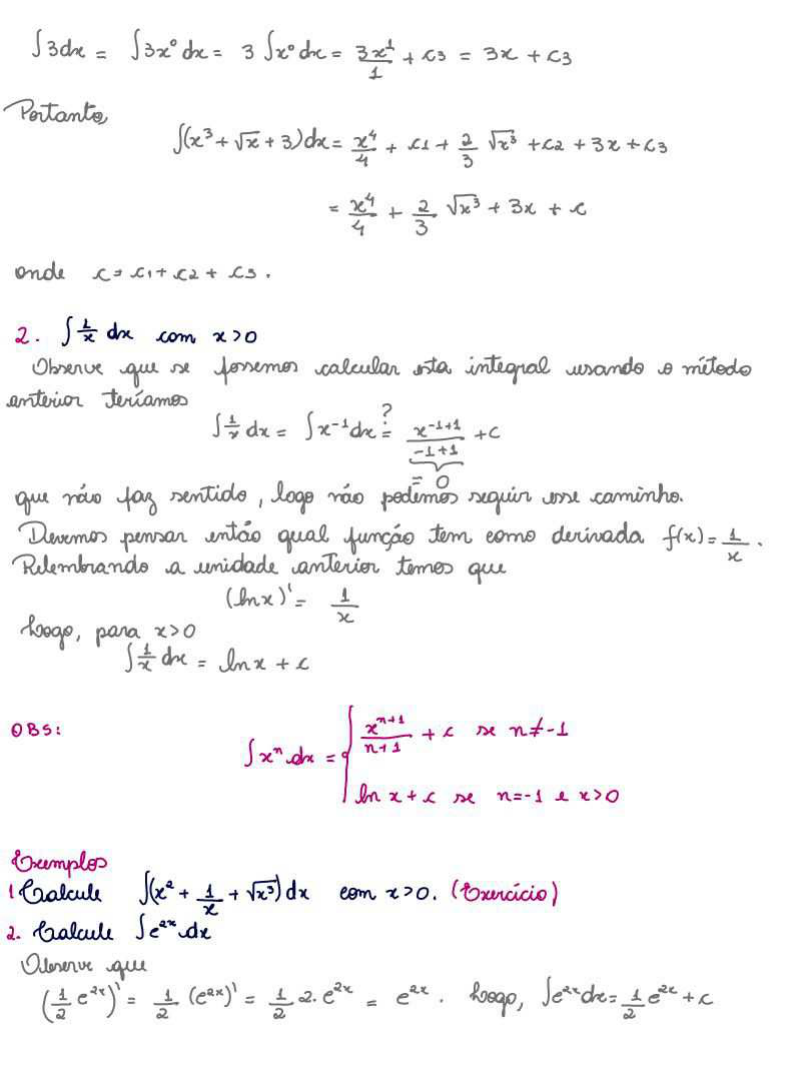 ∫3dx = ∫3x⁰dx = 3∫x⁰dx = 3x¹/1 + c3 = 3x + c3
Portanto,
∫(x³ + √x + 3)dx = x⁴/4 + c1 + 2/3 √x³ + c2 + 3x + c3
= x⁴/4 + 2/3 √x³ + 3x + c
onde c = c1 + c2 + c3.
2. ∫1/x dx com x>0
Observe que se fossemos calcular esta integral usando o método
anterior teríamos
∫1/x dx = ∫x⁻¹dx ?= x⁻¹⁺¹/(-1+1) + c
= 0
que não faz sentido, logo não podemos seguir esse caminho.
Devemos pensar então qual função tem como derivada f(x) = 1/x.
Relembrando a unidade anterior temos que
(ln x)' = 1/x
Logo, para x>0
∫1/x dx = ln x + c
OBS:
∫xⁿ dx = { xⁿ⁺¹/(n+1) + c se n≠-1
ln x + c se n=-1 e x>0
Exemplos
1 Calcule ∫(x² + 1/x + √x³)dx com x>0. (Exercício)
2. Calcule ∫e²ˣ dx
Observe que
(1/2 e²ˣ)' = 1/2 (e²ˣ)' = 1/2 2. e²ˣ = e²ˣ. Logo, ∫e²ˣdx = 1/2 e²ˣ + c